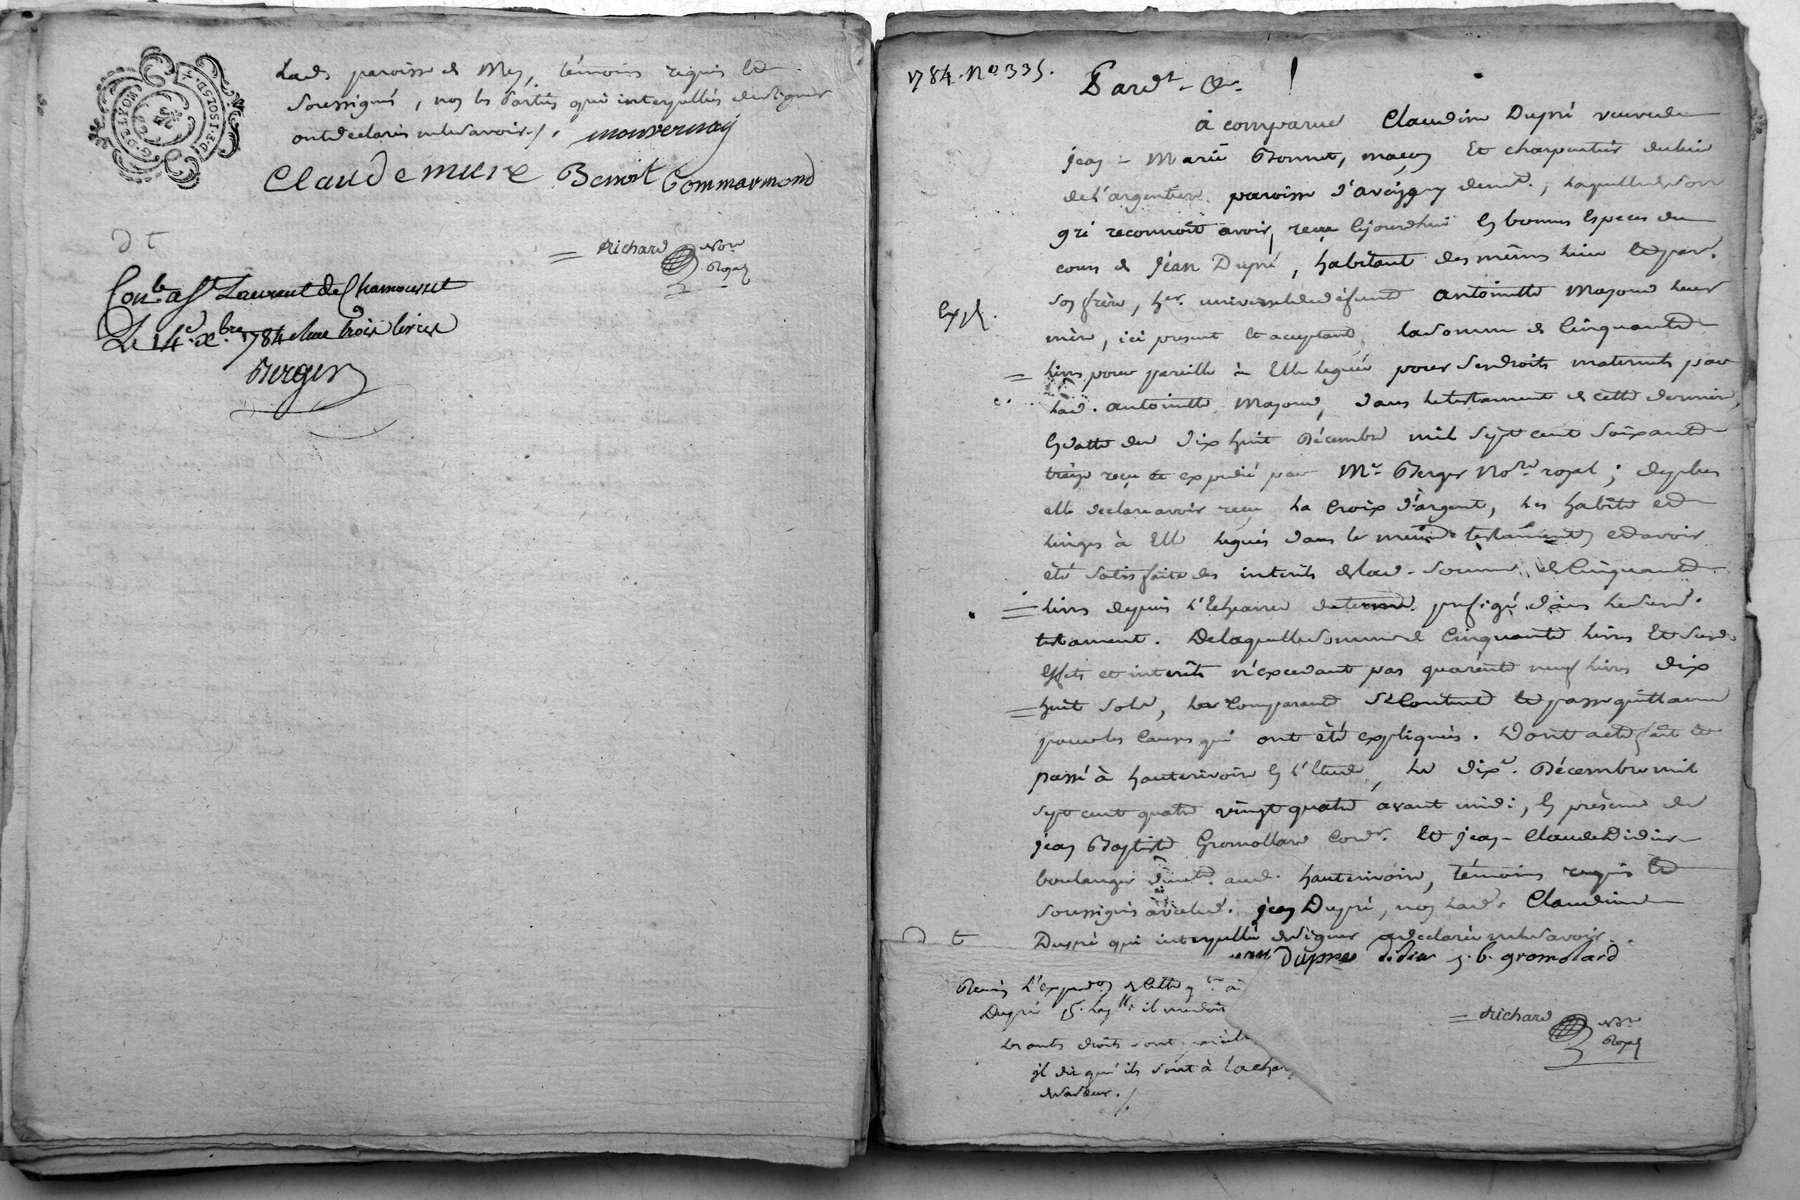 G. D. LYON MOYEN D. P. F. 1 SOLS D.
Lad. paroisse de Mey, témoins requis et
soussignés, non les parties qui interpellés de signer
ont déclaré ne le savoir ./. mouvernay
Claude mure Benoit Commarmond
= Richard Nore
Royal
D t
Con.le a St Laurent de Chamousset
Le 14e Xbre 1784 trois livres
Berger
1784. No 335.
Pardt - &c.
à comparue Claudine Dupré veuve de
jean - Marie Bonnet, maçon et charpentier du lieu
de L'argentiere paroisse d'aveizey demt., laquelle de son
gré reconnoit avoir reçu cejourd'hui en bonnes Especes du
cours de jean Dupré, habitant des mêmes lieu et par.
son frère, her. universel de défunte antoinette Mazond leur
mère, ici present et acceptant, la somme de Cinquante
= livres pour pareille à Elle leguée pour ses droits maternels par
lad. antoinette Mazond, dans le testament de cette derniere,
en datte du dix huit Décembre mil sept cent soixante
treize reçu et expedié par Me. Berger Nore royal ; de plus
elle declare avoir reçu La Croix d'argent, les habits et
linges à Elle legués dans le même testament, et avoir
été satisfaite des interets de lad. somme de Cinquante
= livres depuis l'Echeance du terme prefigé dans le susd.
testament. De laquelle somme de Cinquante livres Et susd.
Effets et interêts n'excedant pas quarente neuf livres dix
= huit sols, La Comparante se Contente et passe quittance
pour les Causes qui ont été expliquées. Dont acte fait et
passé à hauterivoire en l'Etude, Le dixe. Décembre mil
sept cent quatre vingt quatre avant midi, en présence de
jean Baptiste Gromollard Cordr. et jean - Claude Didier
boulanger demt. aud. hauterivoire, témoins requis et
soussignés avec led. jean Dupré, non lad. Claudine
Dupré qui interpellée de signer a declaré ne le savoir.
jean Dupré didier j. b. gromolard
= Richard Nore
Royal
Exp.
D t
Remis l'expedon de cette à
Dupré il me doit
les auts droits sont
jl dit qu'ils sont à la char
de sa sœur ./